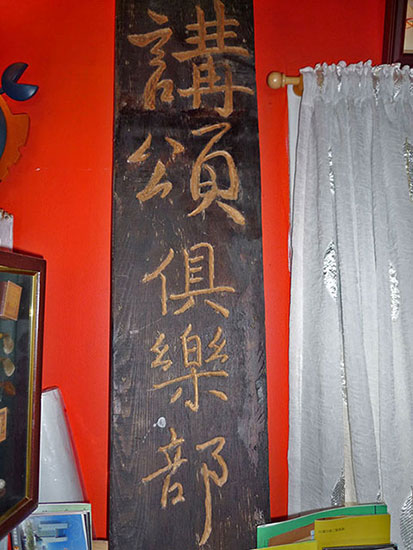 講頌俱樂部